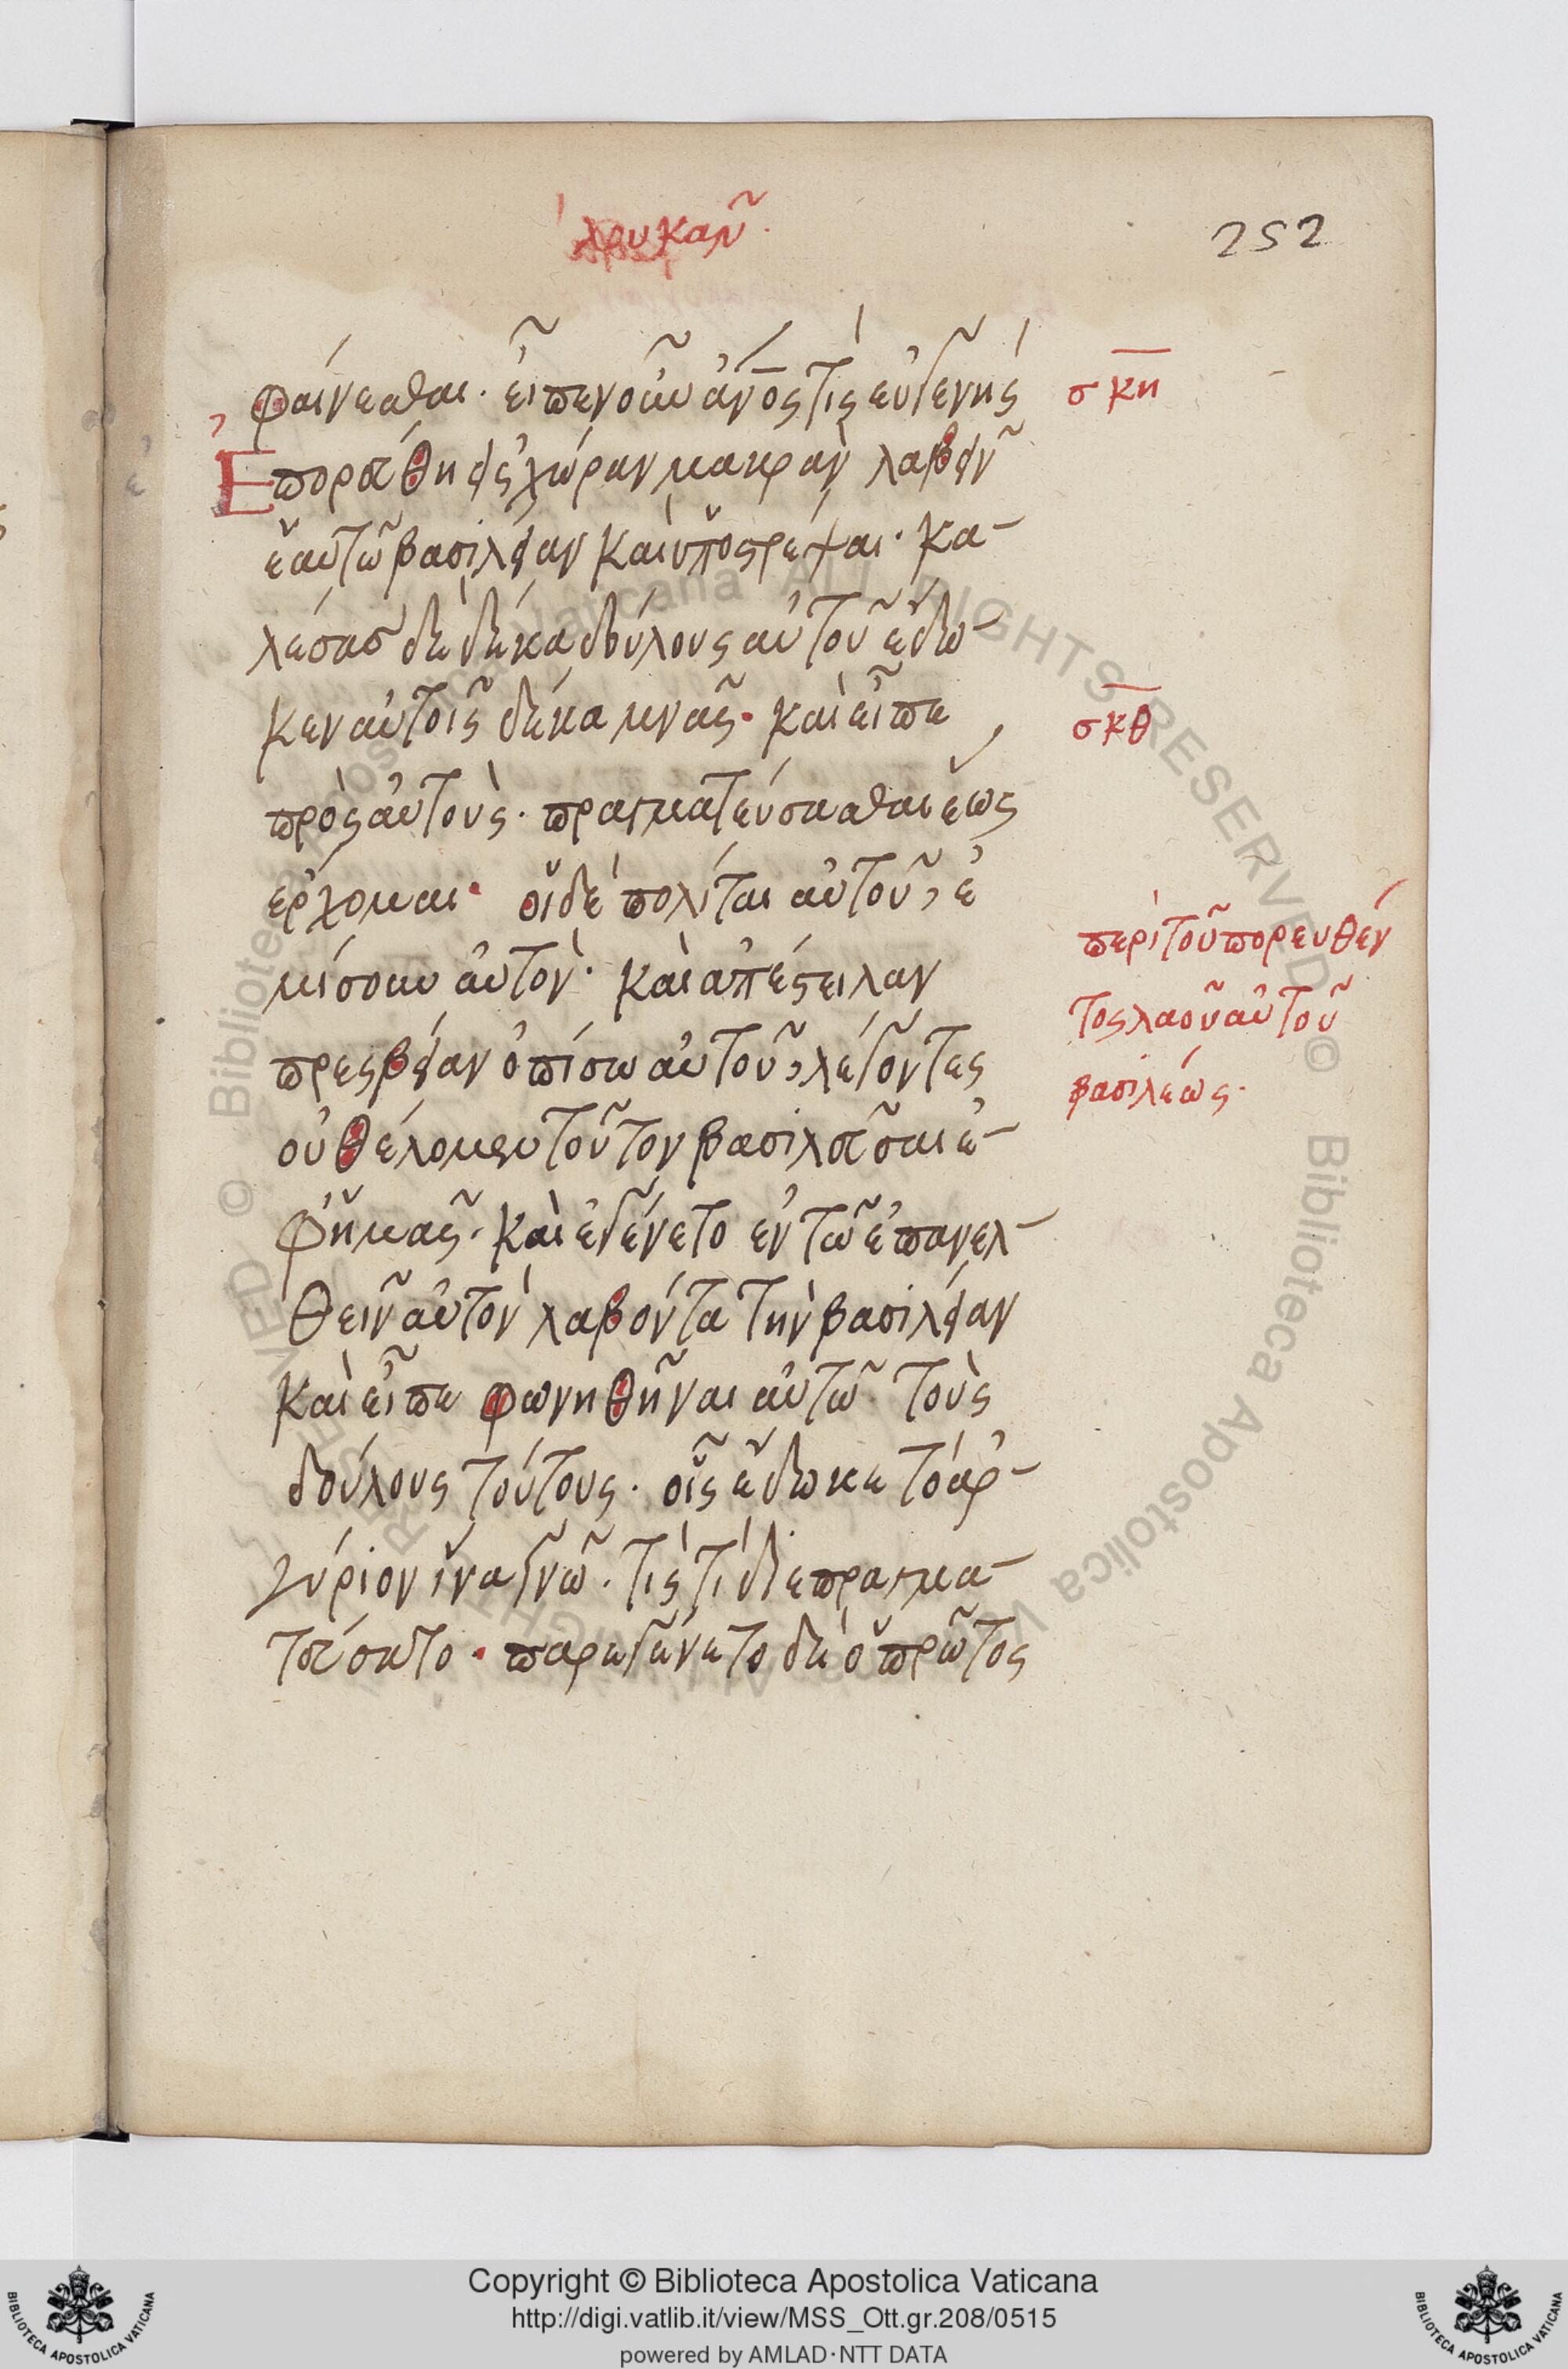 λουκᾶν
252
φαίνεσθαι· εἶπεν οὖν ἄν̅ο̅ς τὶς εὐγενὴς
σκη
Ἐπορεύθη εἰς χώραν μακρὰν λαβεῖν
ἑαυτῶ βασιλείαν καὶ ὑποστρέψαι· κα-
λέσασ δὲ δέκα δούλους αὐτοῦ ἔδω-
κεν αὐτοῖς δέκα μνᾶς· καὶ εἶπε
σκθ
πρὸς αὐτοὺς· πραγματεύσασθαι ἕως
ἔρχομαι· οἱ δὲ πολίται αὐτοῦ, ἐ
μίσουν αὐτὸν· καὶ ἀπέστειλαν
πρεσβείαν ὀπίσω αὐτοῦ, λέγοντες
οὐ θέλομεν τοῦτον βασιλεῦσαι ἐ-
φ' ἡμᾶς· καὶ ἐγένετο ἐν τῶ ἐπανελ-
θεῖν αὐτὸν λαβόντα τὴν βασιλείαν
καὶ εἶπε φωνηθῆναι αὐτῶ τοὺς
δούλους τούτους· οἷς ἔδωκε τὸ ἀρ-
γύριον ἵνα γνῶ· τὶς τί διεπραγμα-
τεύσατο· παρεγένετο δὲ ὁ πρῶτος
περὶ τοῦ πορευθέν
τος λαοῦν αὐτοῦ
βασιλέως·
Copyright © Biblioteca Apostolica Vaticana
http://digi.vatlib.it/view/MSS_Ott.gr.208/0515
powered by AMLAD·NTT DATA